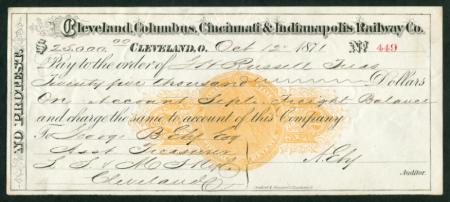 Cleveland, Columbus, Cincinnati & Indianapolis Railway Co.
$25,000.00 CLEVELAND, O. Oct 12 1871 No 449
Pay to the order of Russell Treas
Twenty five thousand Dollars
On Account Sept. Freight Balance
and charge the same to account of this Company
To George B. Ely Esq
Asst Treasurer
L S & M S Ry
Cleveland O
Auditor.
NO PROTEST.